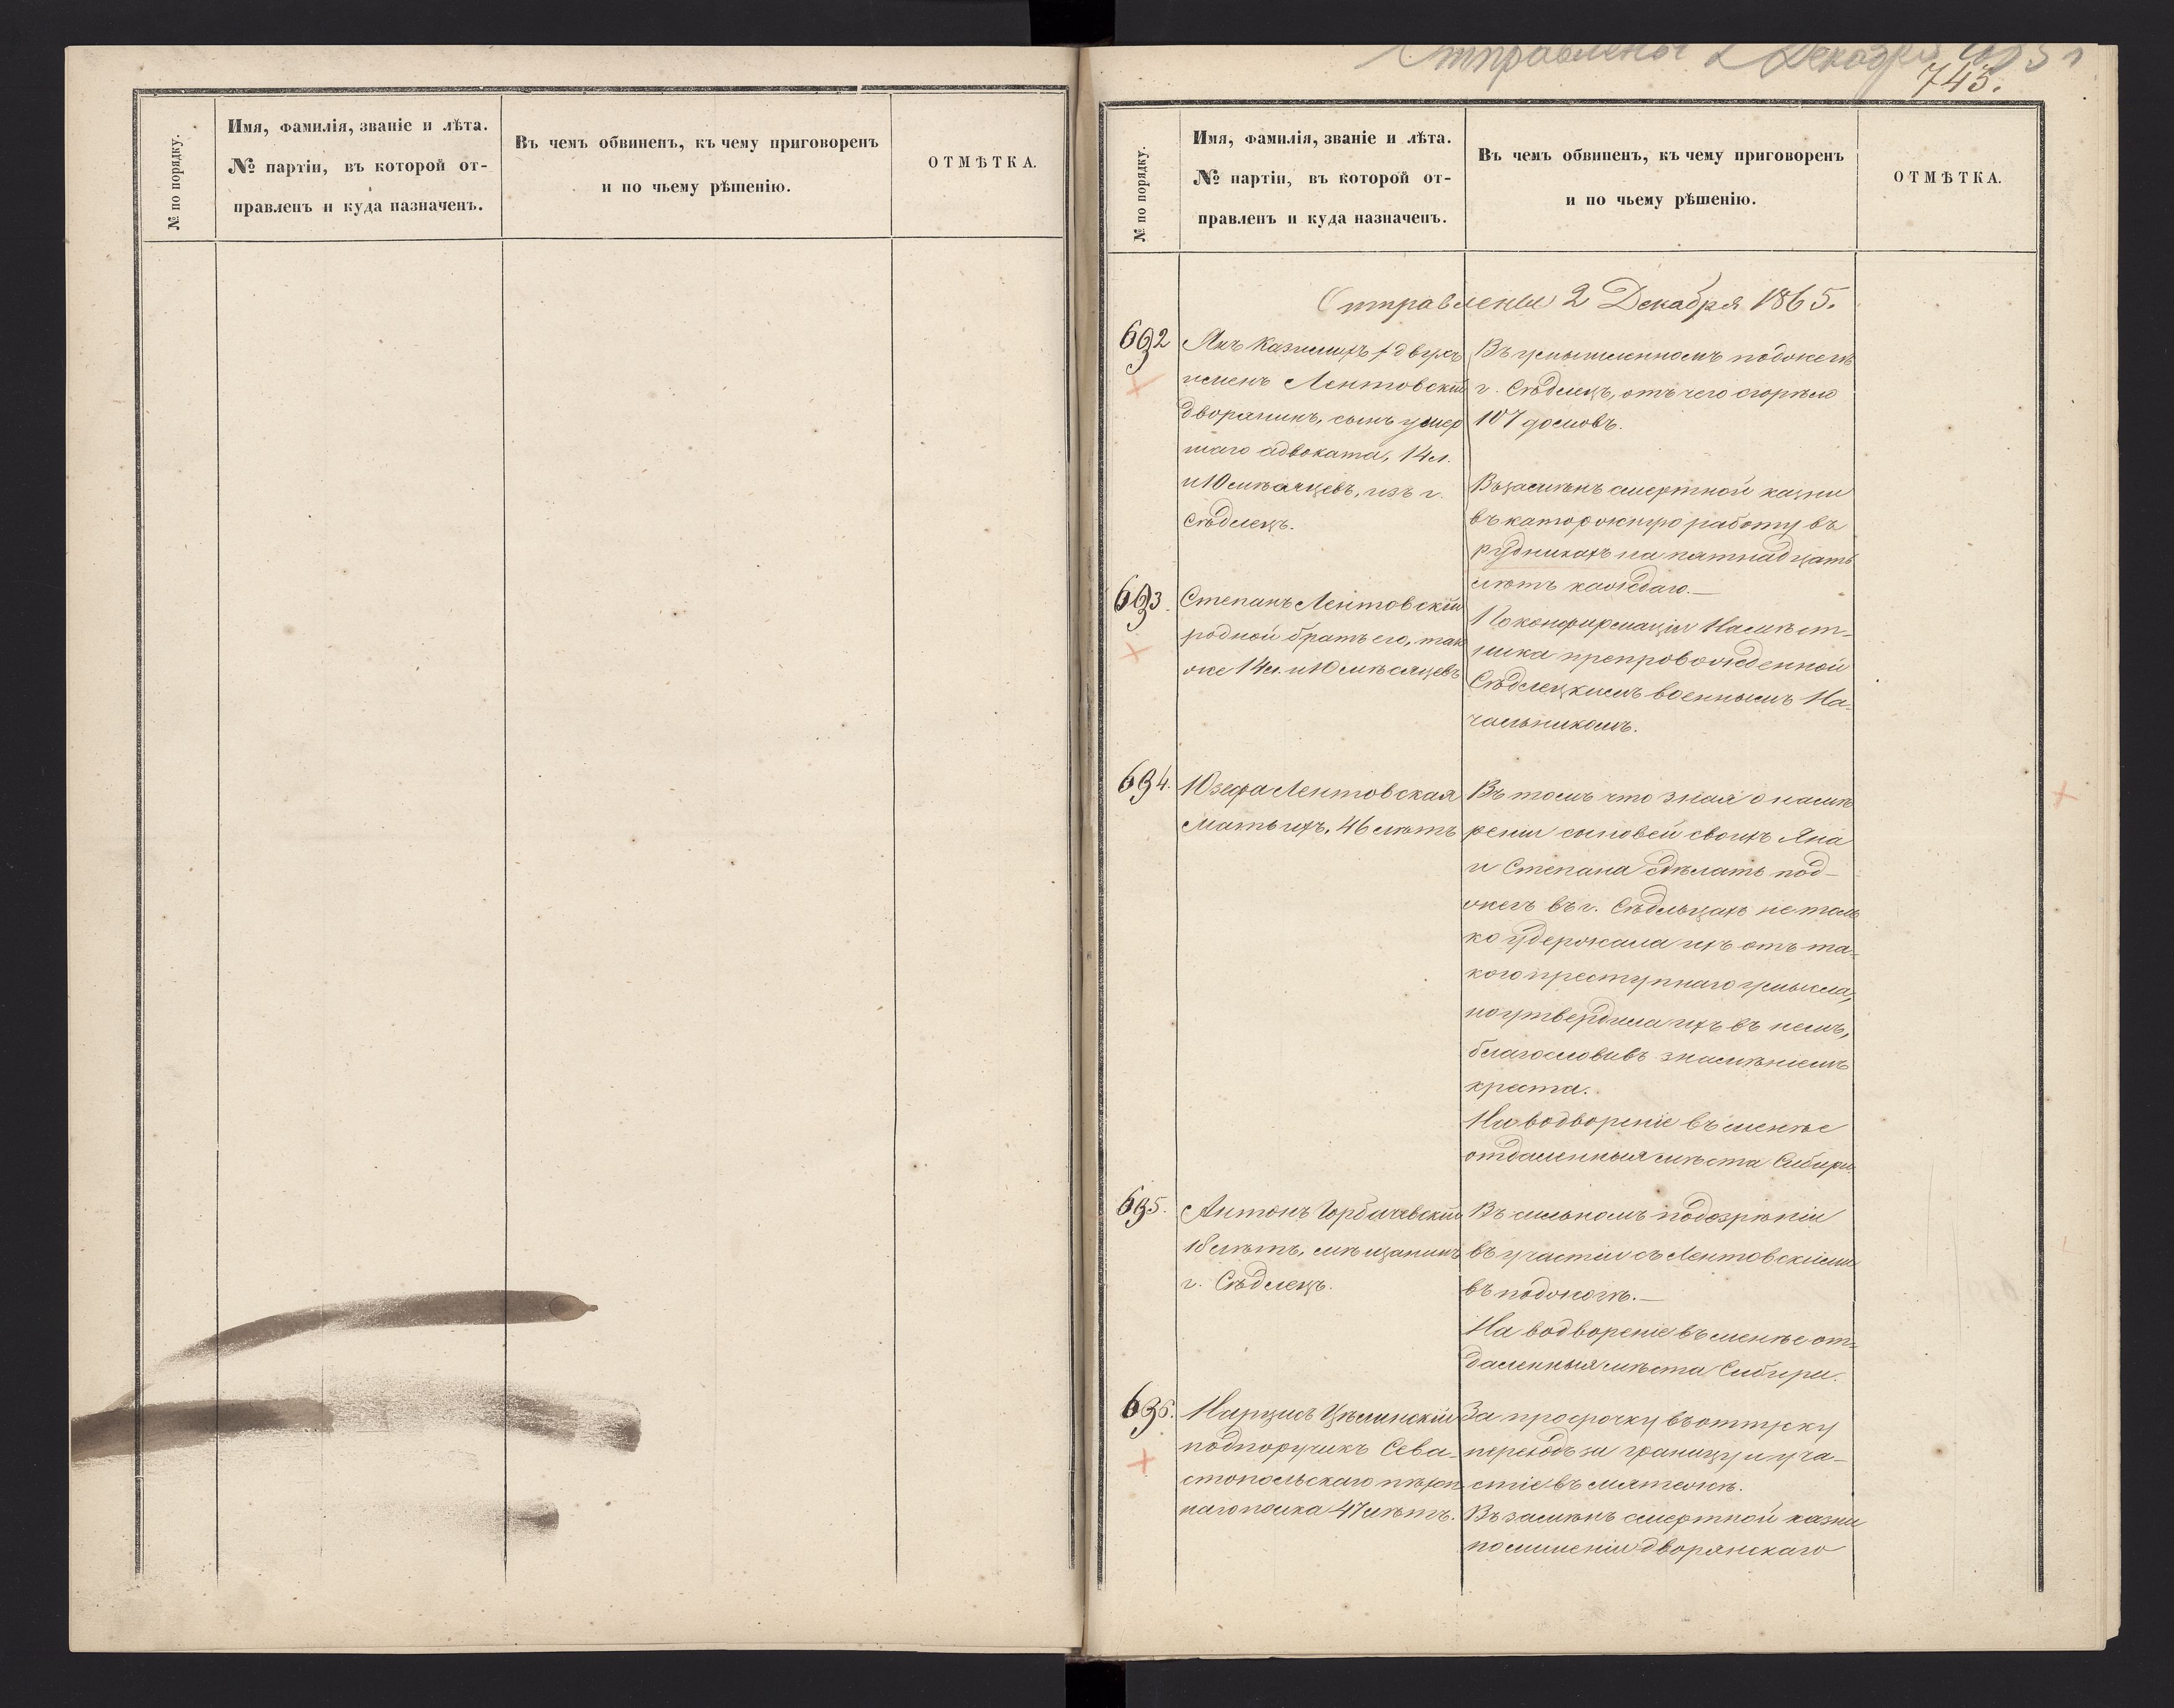 № по порядку.
Имя, фамилія, званіе и лѣта.
№ партіи, въ которой от-
правленъ и куда назначенъ.
Въ чемъ обвиненъ, къ чему приговоренъ
и по чьему рѣшенію.
ОТМѢТКА.
Отправлены 2 Декабря 1865 г
743.
№ по порядку.
Имя, фамилія, званіе и лѣта.
№ партіи, въ которой от-
правленъ и куда назначенъ.
Въ чемъ обвиненъ, къ чему приговоренъ
и по чьему рѣшенію.
ОТМѢТКА.
Отправлены 2 Декабря 1865.
692
Янъ Казимиръ двухъ
именъ Лентовскій
дворянинъ, сынъ умер
шаго адвоката, 14 л.
и 10 мѣсяцевъ, изъ г.
Сѣдлецъ.
Въ умышленномъ поджогѣ
г. Сѣдлецъ, отъ чего сгорѣло
107 домовъ.
Взамѣнъ смертной казни
въ каторжную работу въ
рудникахъ на пятнадцать
лѣтъ каждаго.—
По конфирмаціи Намѣст-
ника препровожденной
Сѣдлецкимъ военнымъ На-
чальникомъ.
693.
Степанъ Лентовскій
родной братъ его, так
же 14 л. и 10 мѣсяцевъ
694.
Юзефа Лентовская
Мать ихъ, 46 лѣтъ
Въ томъ что зная о намѣ
реніи сыновей своихъ Яна
и Степана сдѣлать под-
жегъ въ г. Сѣдльцахъ не толь
ко удержала ихъ отъ та-
кого преступнаго умысла,
но утвердила ихъ въ немъ,
благословивъ знаменіемъ
креста.
На водвореніе въ менѣе
отдаленныя мѣста Сибири.
695.
Антонъ Горбачевскій
18 лѣтъ, мѣщанинъ
г. Сѣдлецъ.
Въ сильномъ подозрѣніи
въ участіи съ Лентовскими
въ поджогѣ.—
На водвореніе въ менѣе от-
даленныя мѣста Сибири.
696.
Нарцисъ Цѣлинскій
подпоручикъ Сева-
стопольскаго пѣхот
наго полка 47 лѣтъ.
За просрочку въ отпуску
переходъ за границу и уча-
стіе въ мятежѣ.
Въ замѣнъ смертной казни
по лишеніи дворянскаго